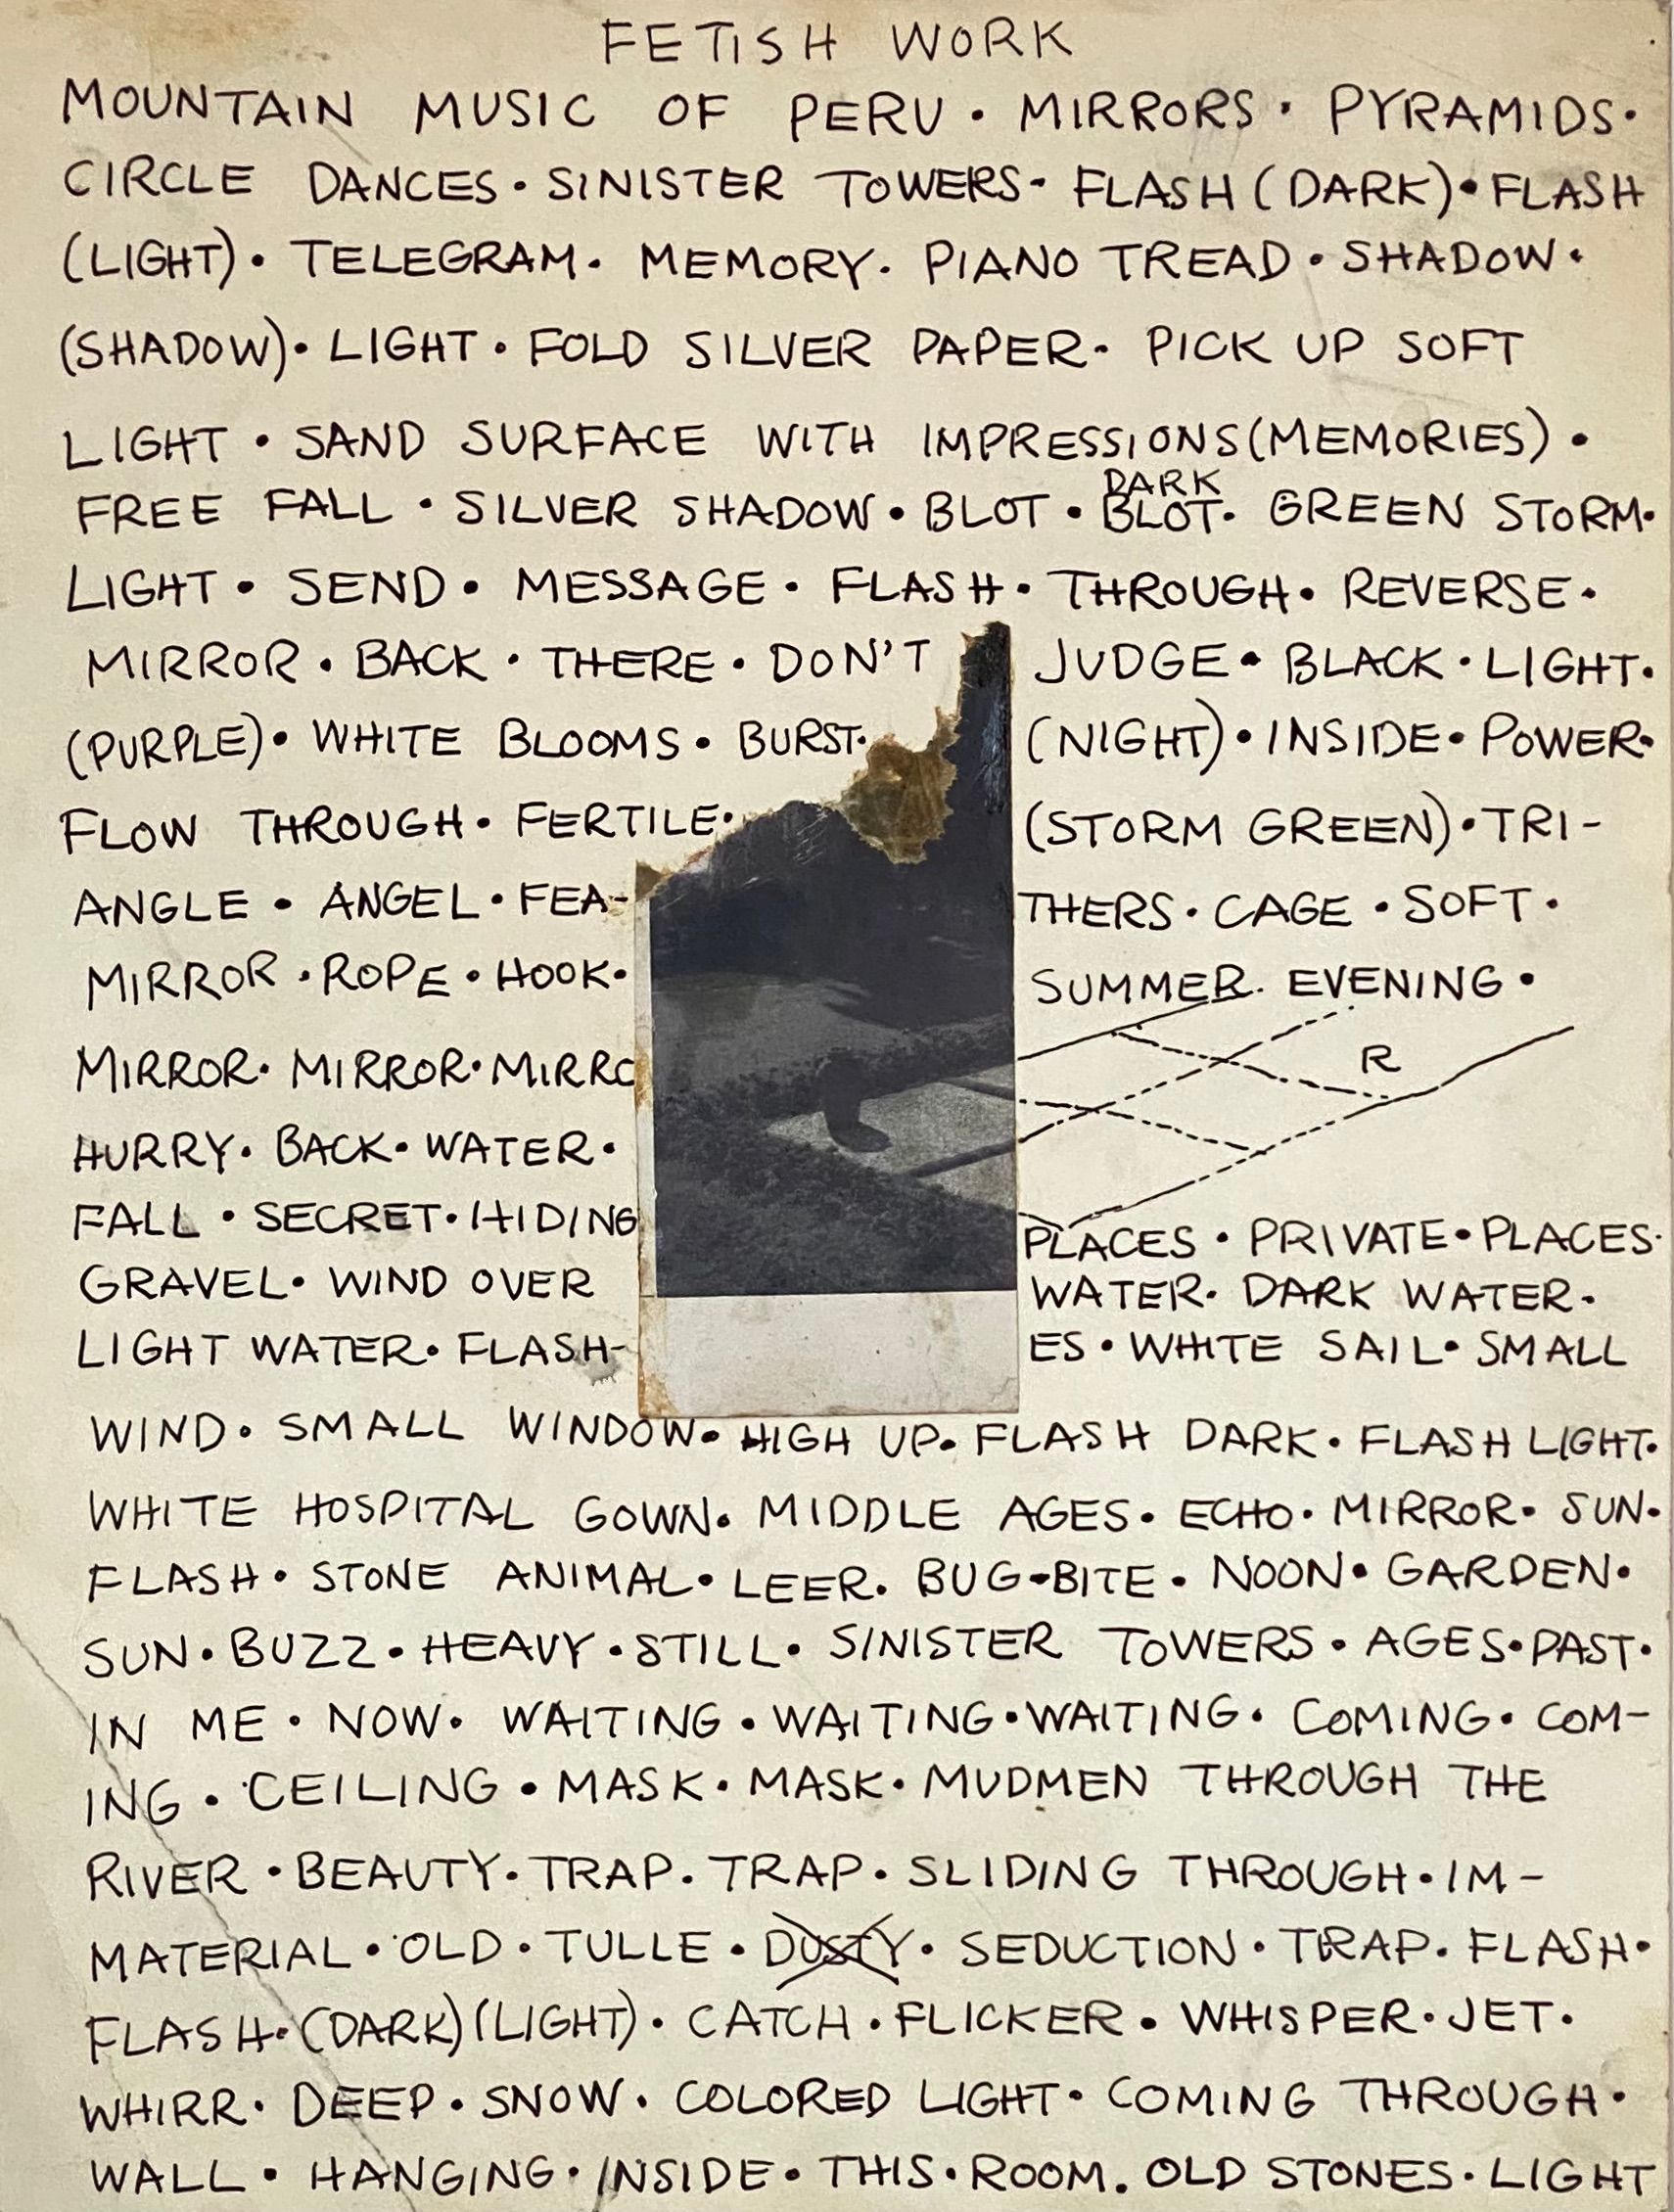 FETISH WORK
MOUNTAIN MUSIC OF PERU • MIRRORS • PYRAMIDS •
CIRCLE DANCES • SINISTER TOWERS • FLASH (DARK) • FLASH
(LIGHT) • TELEGRAM • MEMORY • PIANO TREAD • SHADOW •
(SHADOW) • LIGHT • FOLD SILVER PAPER • PICK UP SOFT
LIGHT • SAND SURFACE WITH IMPRESSIONS (MEMORIES) •
FREE FALL • SILVER SHADOW • BLOT • DARK BLOT • GREEN STORM •
LIGHT • SEND • MESSAGE • FLASH • THROUGH • REVERSE •
MIRROR • BACK • THERE • DON'T JUDGE • BLACK • LIGHT •
(PURPLE) • WHITE BLOOMS • BURST • (NIGHT) • INSIDE • POWER •
FLOW THROUGH • FERTILE • (STORM GREEN) • TRI-
ANGLE • ANGEL • FEA- THERS • CAGE • SOFT •
MIRROR • ROPE • HOOK • SUMMER • EVENING •
MIRROR • MIRROR • MIRRO
R
HURRY • BACK • WATER •
FALL • SECRET • HIDING PLACES • PRIVATE • PLACES •
GRAVEL • WIND OVER WATER • DARK WATER •
LIGHT WATER • FLASH- ES • WHITE SAIL • SMALL
WIND • SMALL WINDOW • HIGH UP • FLASH DARK • FLASH LIGHT •
WHITE HOSPITAL GOWN • MIDDLE AGES • ECHO • MIRROR • SUN •
FLASH • STONE ANIMAL • LEER • BUG-BITE • NOON • GARDEN •
SUN • BUZZ • HEAVY • STILL • SINISTER TOWERS • AGES • PAST •
IN ME • NOW • WAITING • WAITING • WAITING • COMING • COM-
ING • CEILING • MASK • MASK • MUDMEN THROUGH THE
RIVER • BEAUTY • TRAP • TRAP • SLIDING THROUGH • IM-
MATERIAL • OLD • TULLE • DUSTY • SEDUCTION • TRAP • FLASH •
FLASH • (DARK) (LIGHT) • CATCH • FLICKER • WHISPER • JET •
WHIRR • DEEP • SNOW • COLORED LIGHT • COMING THROUGH •
WALL • HANGING • INSIDE • THIS • ROOM • OLD STONES • LIGHT